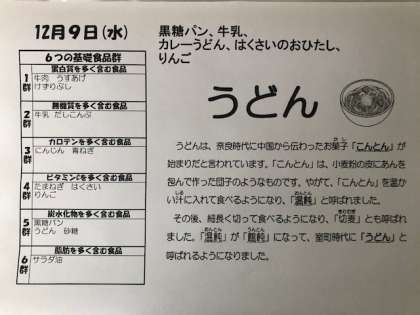 12月9日(水)
6つの基礎食品群
蛋白質を多く含む食品
1群
牛肉 うすあげ
けずりぶし
無機質を多く含む食品
2群
牛乳 だしこんぶ
カロテンを多く含む食品
3群
にんじん 青ねぎ
ビタミンCを多く含む食品
4群
たまねぎ はくさい
りんご
炭水化物を多く含む食品
5群
黒糖パン
うどん 砂糖
脂肪を多く含む食品
6群
サラダ油
黒糖パン、牛乳、
カレーうどん、はくさいのおひたし、
りんご
うどん
うどんは、奈良時代に中国から伝わったお菓子「こんとん」が
始まりだと言われています。「こんとん」は、小麦粉の皮にあんを
包んで作った団子のようなものです。やがて、「こんとん」を温か
い汁に入れて食べるようになり、「温飩」と呼ばれました。
その後、細長く切って食べるようになり、「切麦」とも呼ばれ
ました。「温飩」が「饂飩」になって、室町時代に「うどん」と
呼ばれるようになりました。